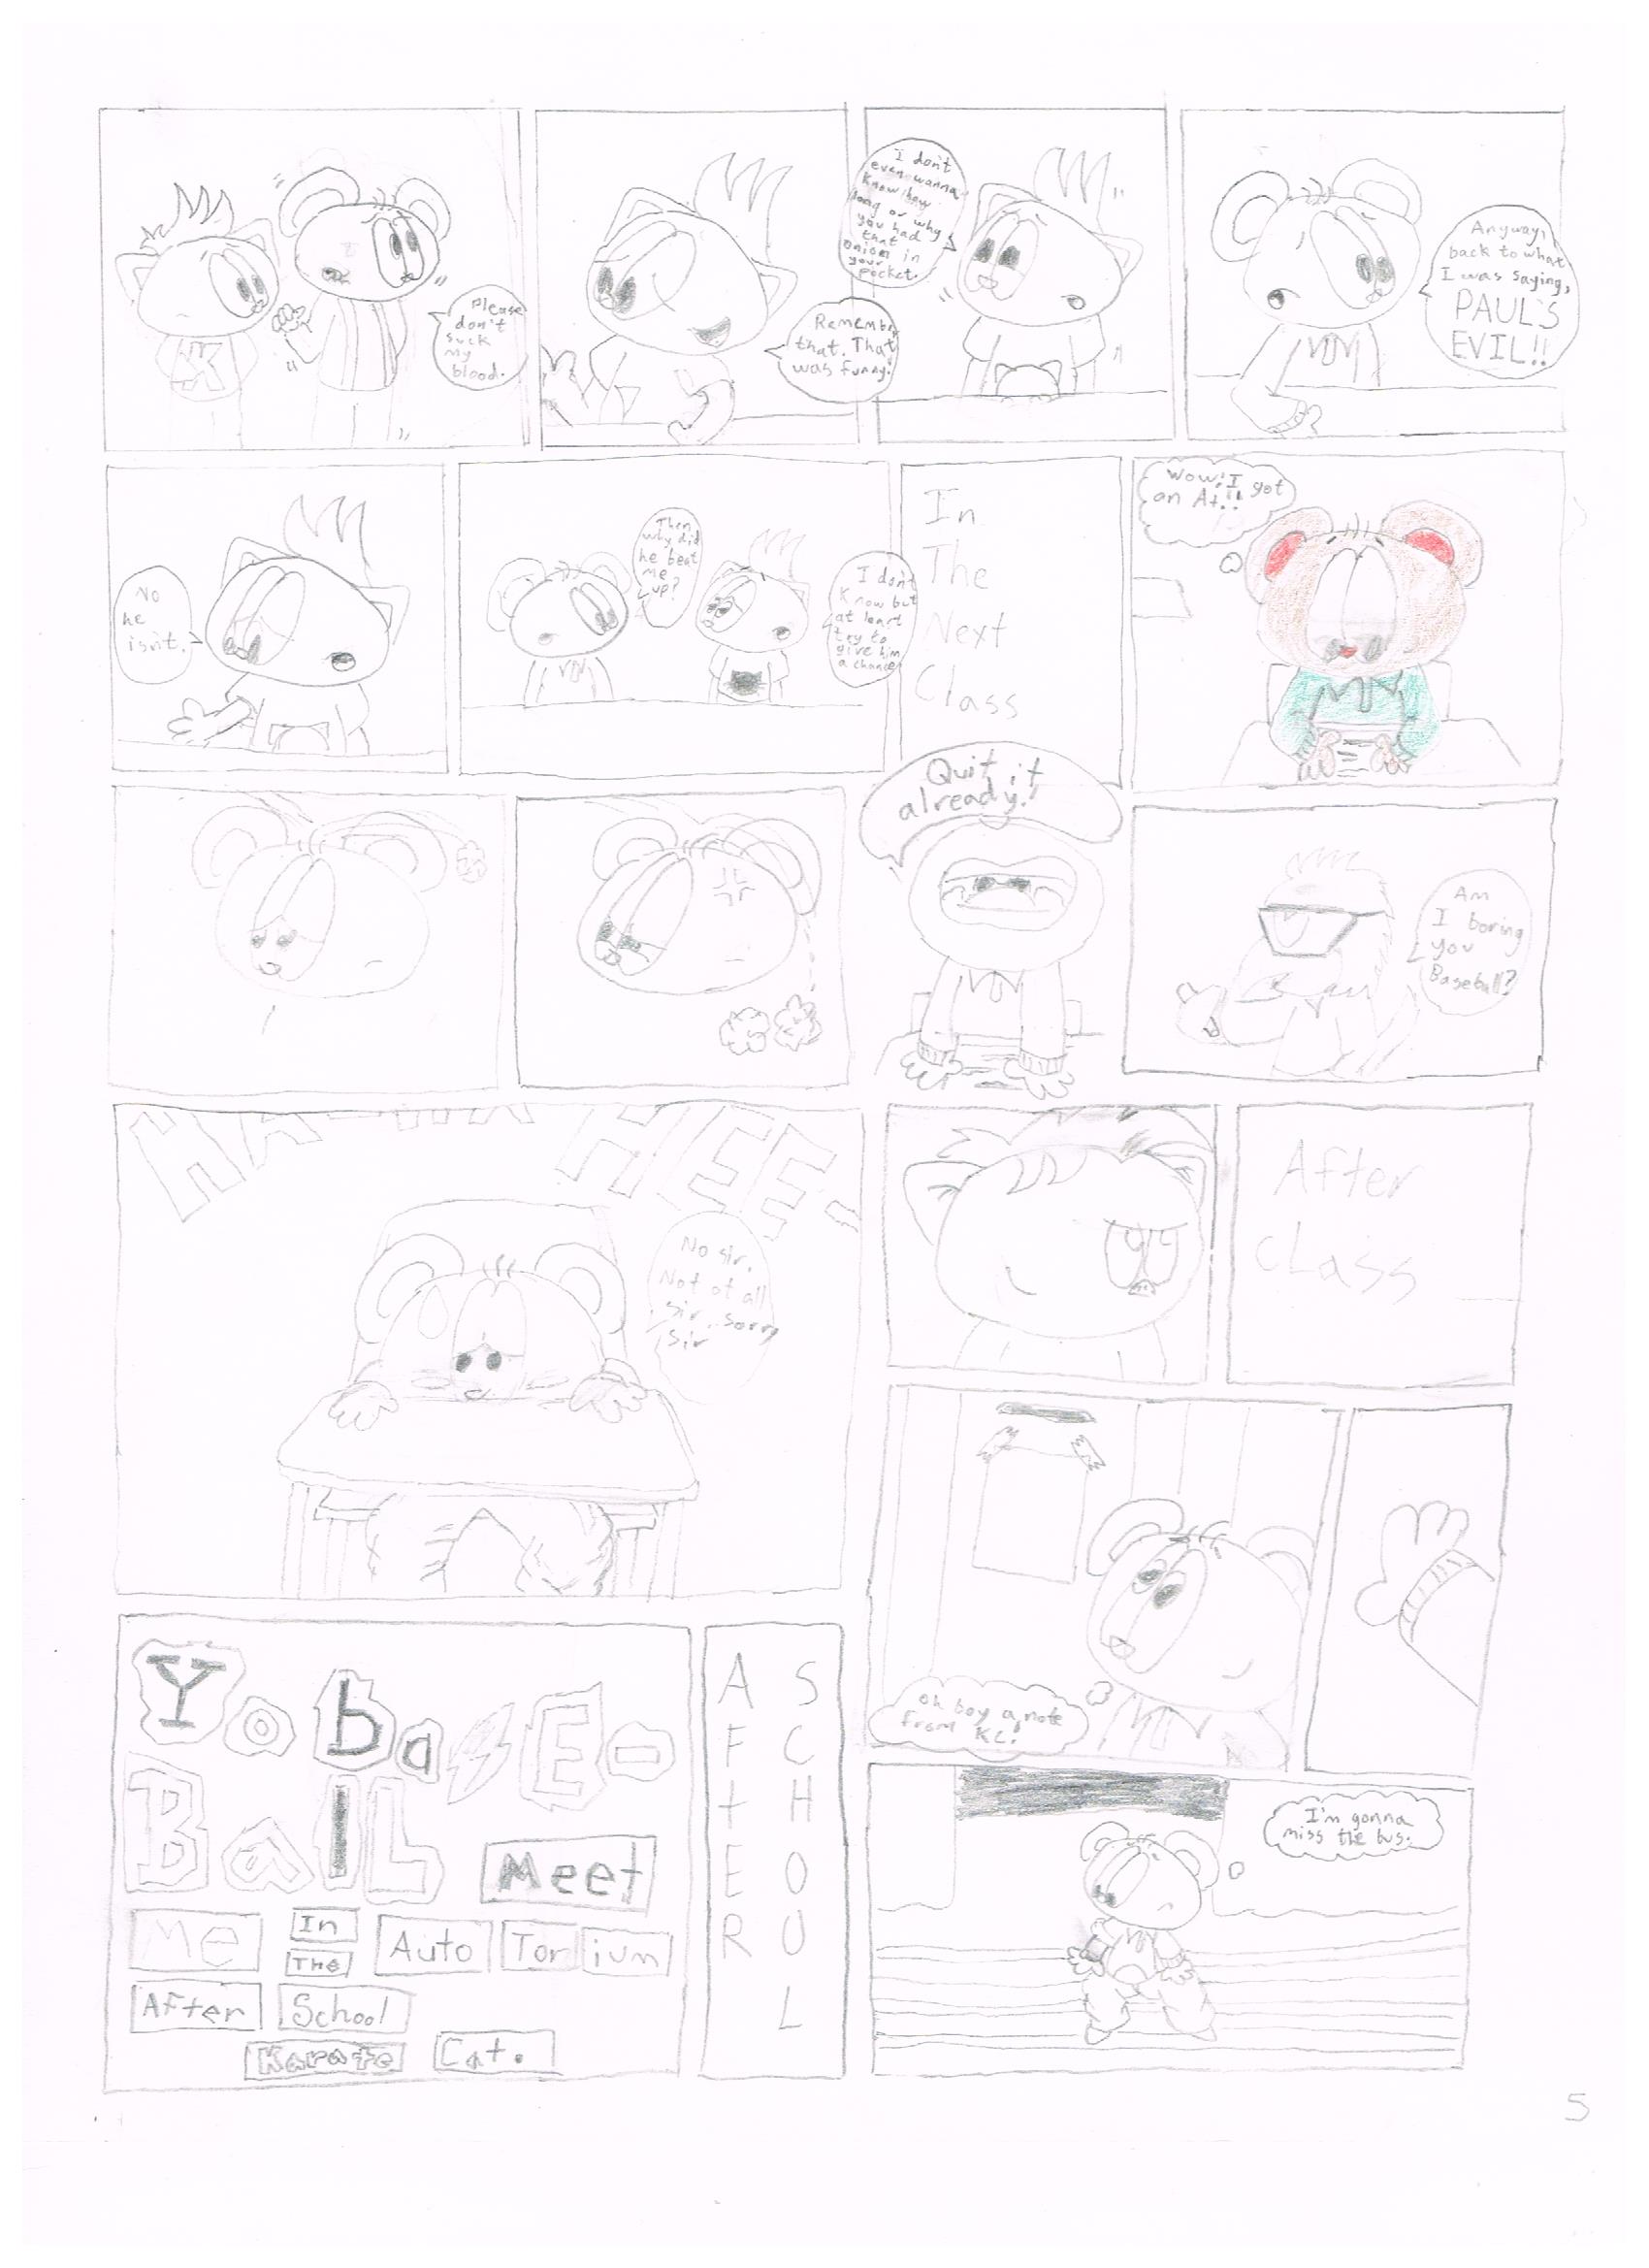 Please
don't
suck
my
blood.
Remember
that. That
was funny.
I don't
even wanna
know how
long or why
you had
that
onion in
your
pocket.
Anyway,
back to what
I was saying,
PAUL'S
EVIL!!
No
he
isn't.
Then
why did
he beat
me
up?
I don't
know but
at least
try to
give him
a chance
In
The
Next
Class
Wow! I got
an A+!!
Quit it
already!
Am
I boring
you
Baseball?
HA-HA HEE-
No sir.
Not at all
sir. sorry
sir
After
cLass
oh boy a note
from KC!
Yo basE-
BaLL
Meet
Me
In
THE
Auto Tor ium
AFter School
Karate Cat.
AFtER
SCHOOL
I'm gonna
miss the bus.
5